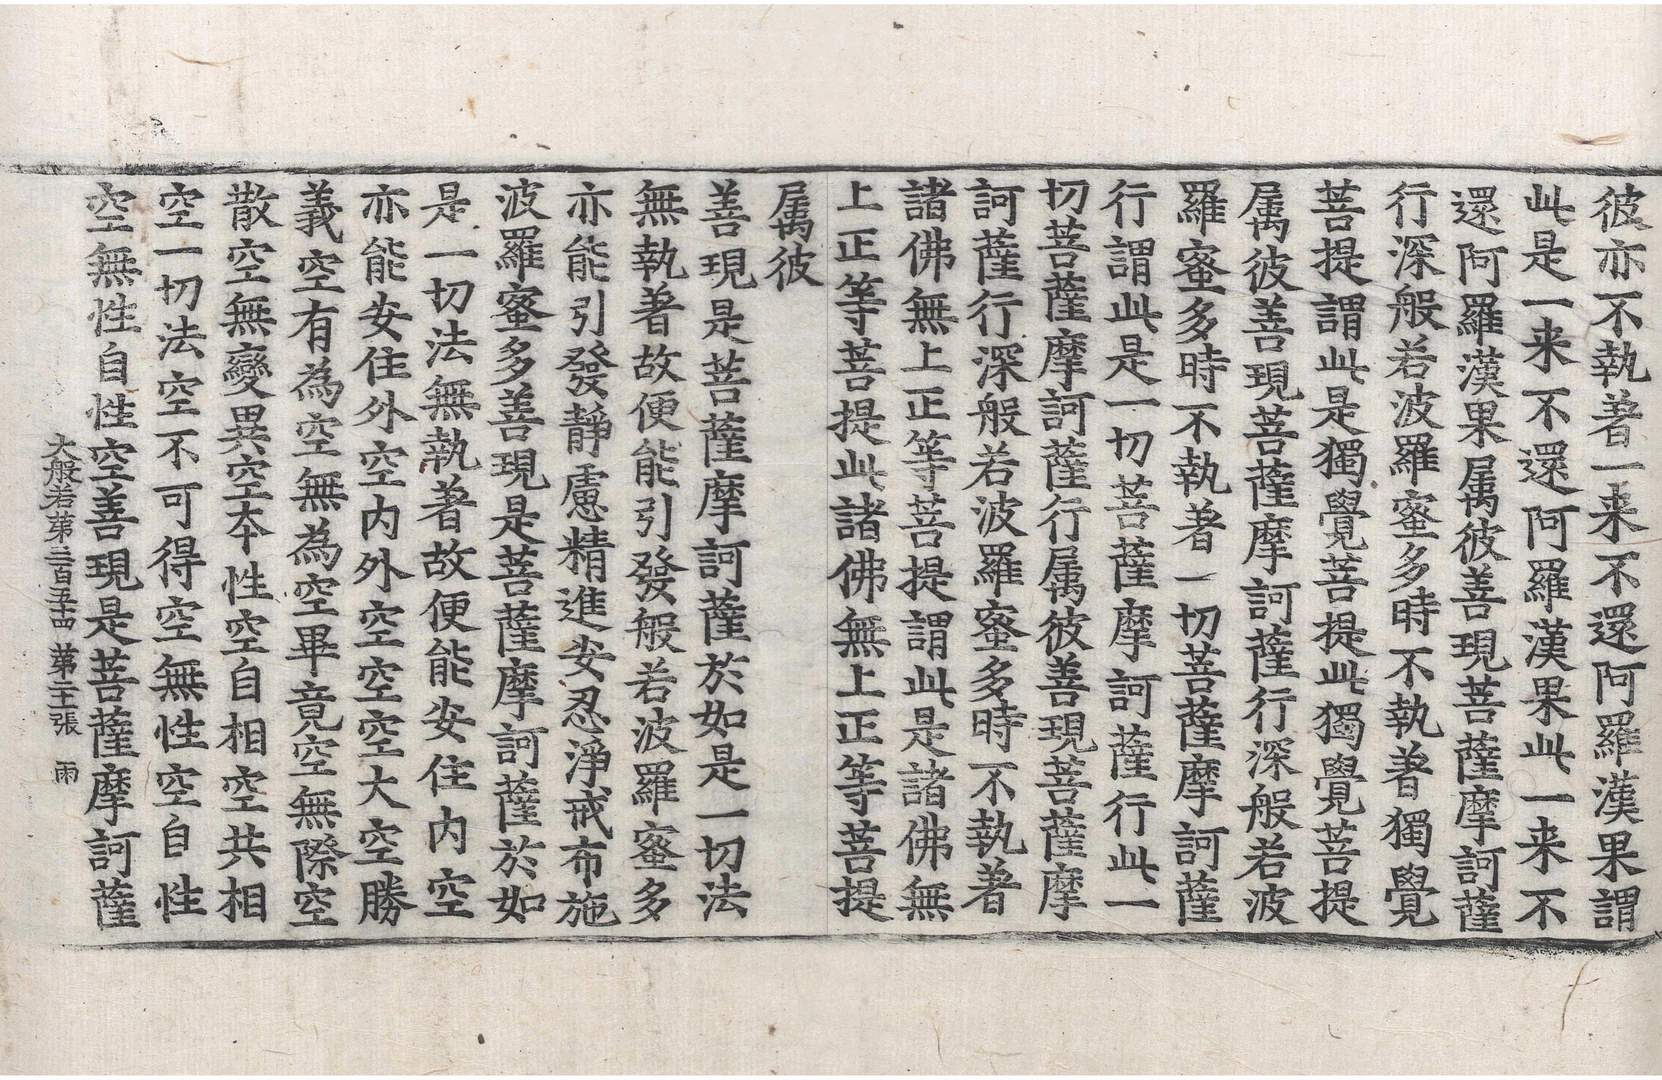 彼亦不執著一来不還阿羅漢果謂
此是一来不還阿羅漢果此一来不
還阿羅漢果属彼善現菩薩摩訶薩
行深般若波羅蜜多時不執著獨覺
菩提謂此是獨覺菩提此獨覺菩提
属彼善現菩薩摩訶薩行深般若波
羅蜜多時不執著一切菩薩摩訶薩
行謂此是一切菩薩摩訶薩行此一
切菩薩摩訶薩行属彼善現菩薩摩
訶薩行深般若波羅蜜多時不執著
諸佛無上正等菩提謂此是諸佛無
上正等菩提此諸佛無上正等菩提
属彼
善現是菩薩摩訶薩於如是一切法
無執著故便能引發般若波羅蜜多
亦能引發静慮精進安忍淨戒布施
波羅蜜多善現是菩薩摩訶薩於如
是一切法無執著故便能安住內空
亦能安住外空內外空空空大空勝
義空有為空無為空畢竟空無際空
散空無變異空本性空自相空共相
空一切法空不可得空無性空自性
空無性自性空善現是菩薩摩訶薩
大般若第三百五十四 第二十一張 雨